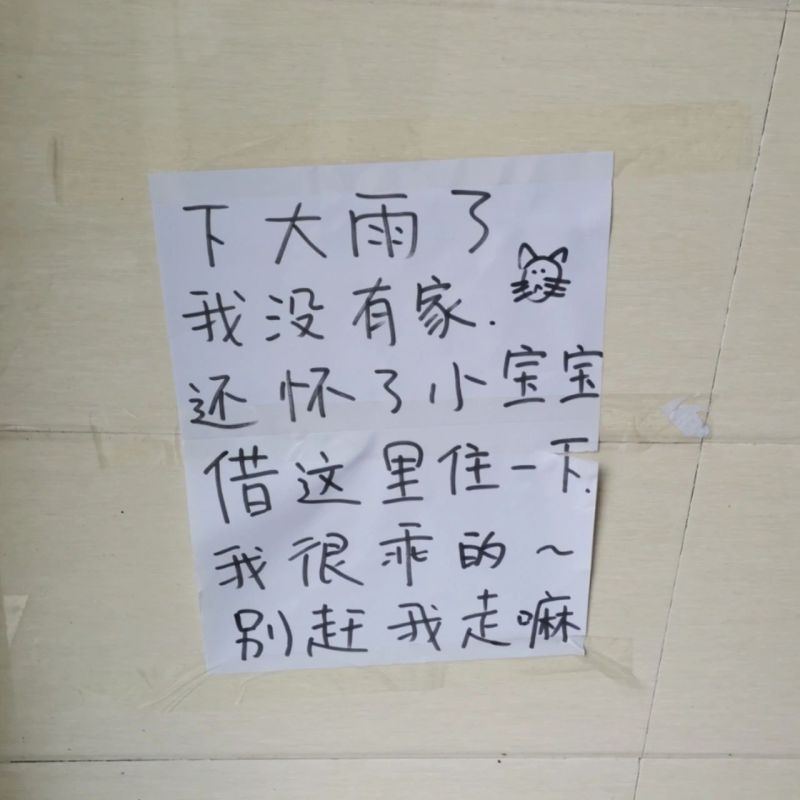 下大雨了
我没有家.
还怀了小宝宝
借这里住一下.
我很乖的~
别赶我走嘛